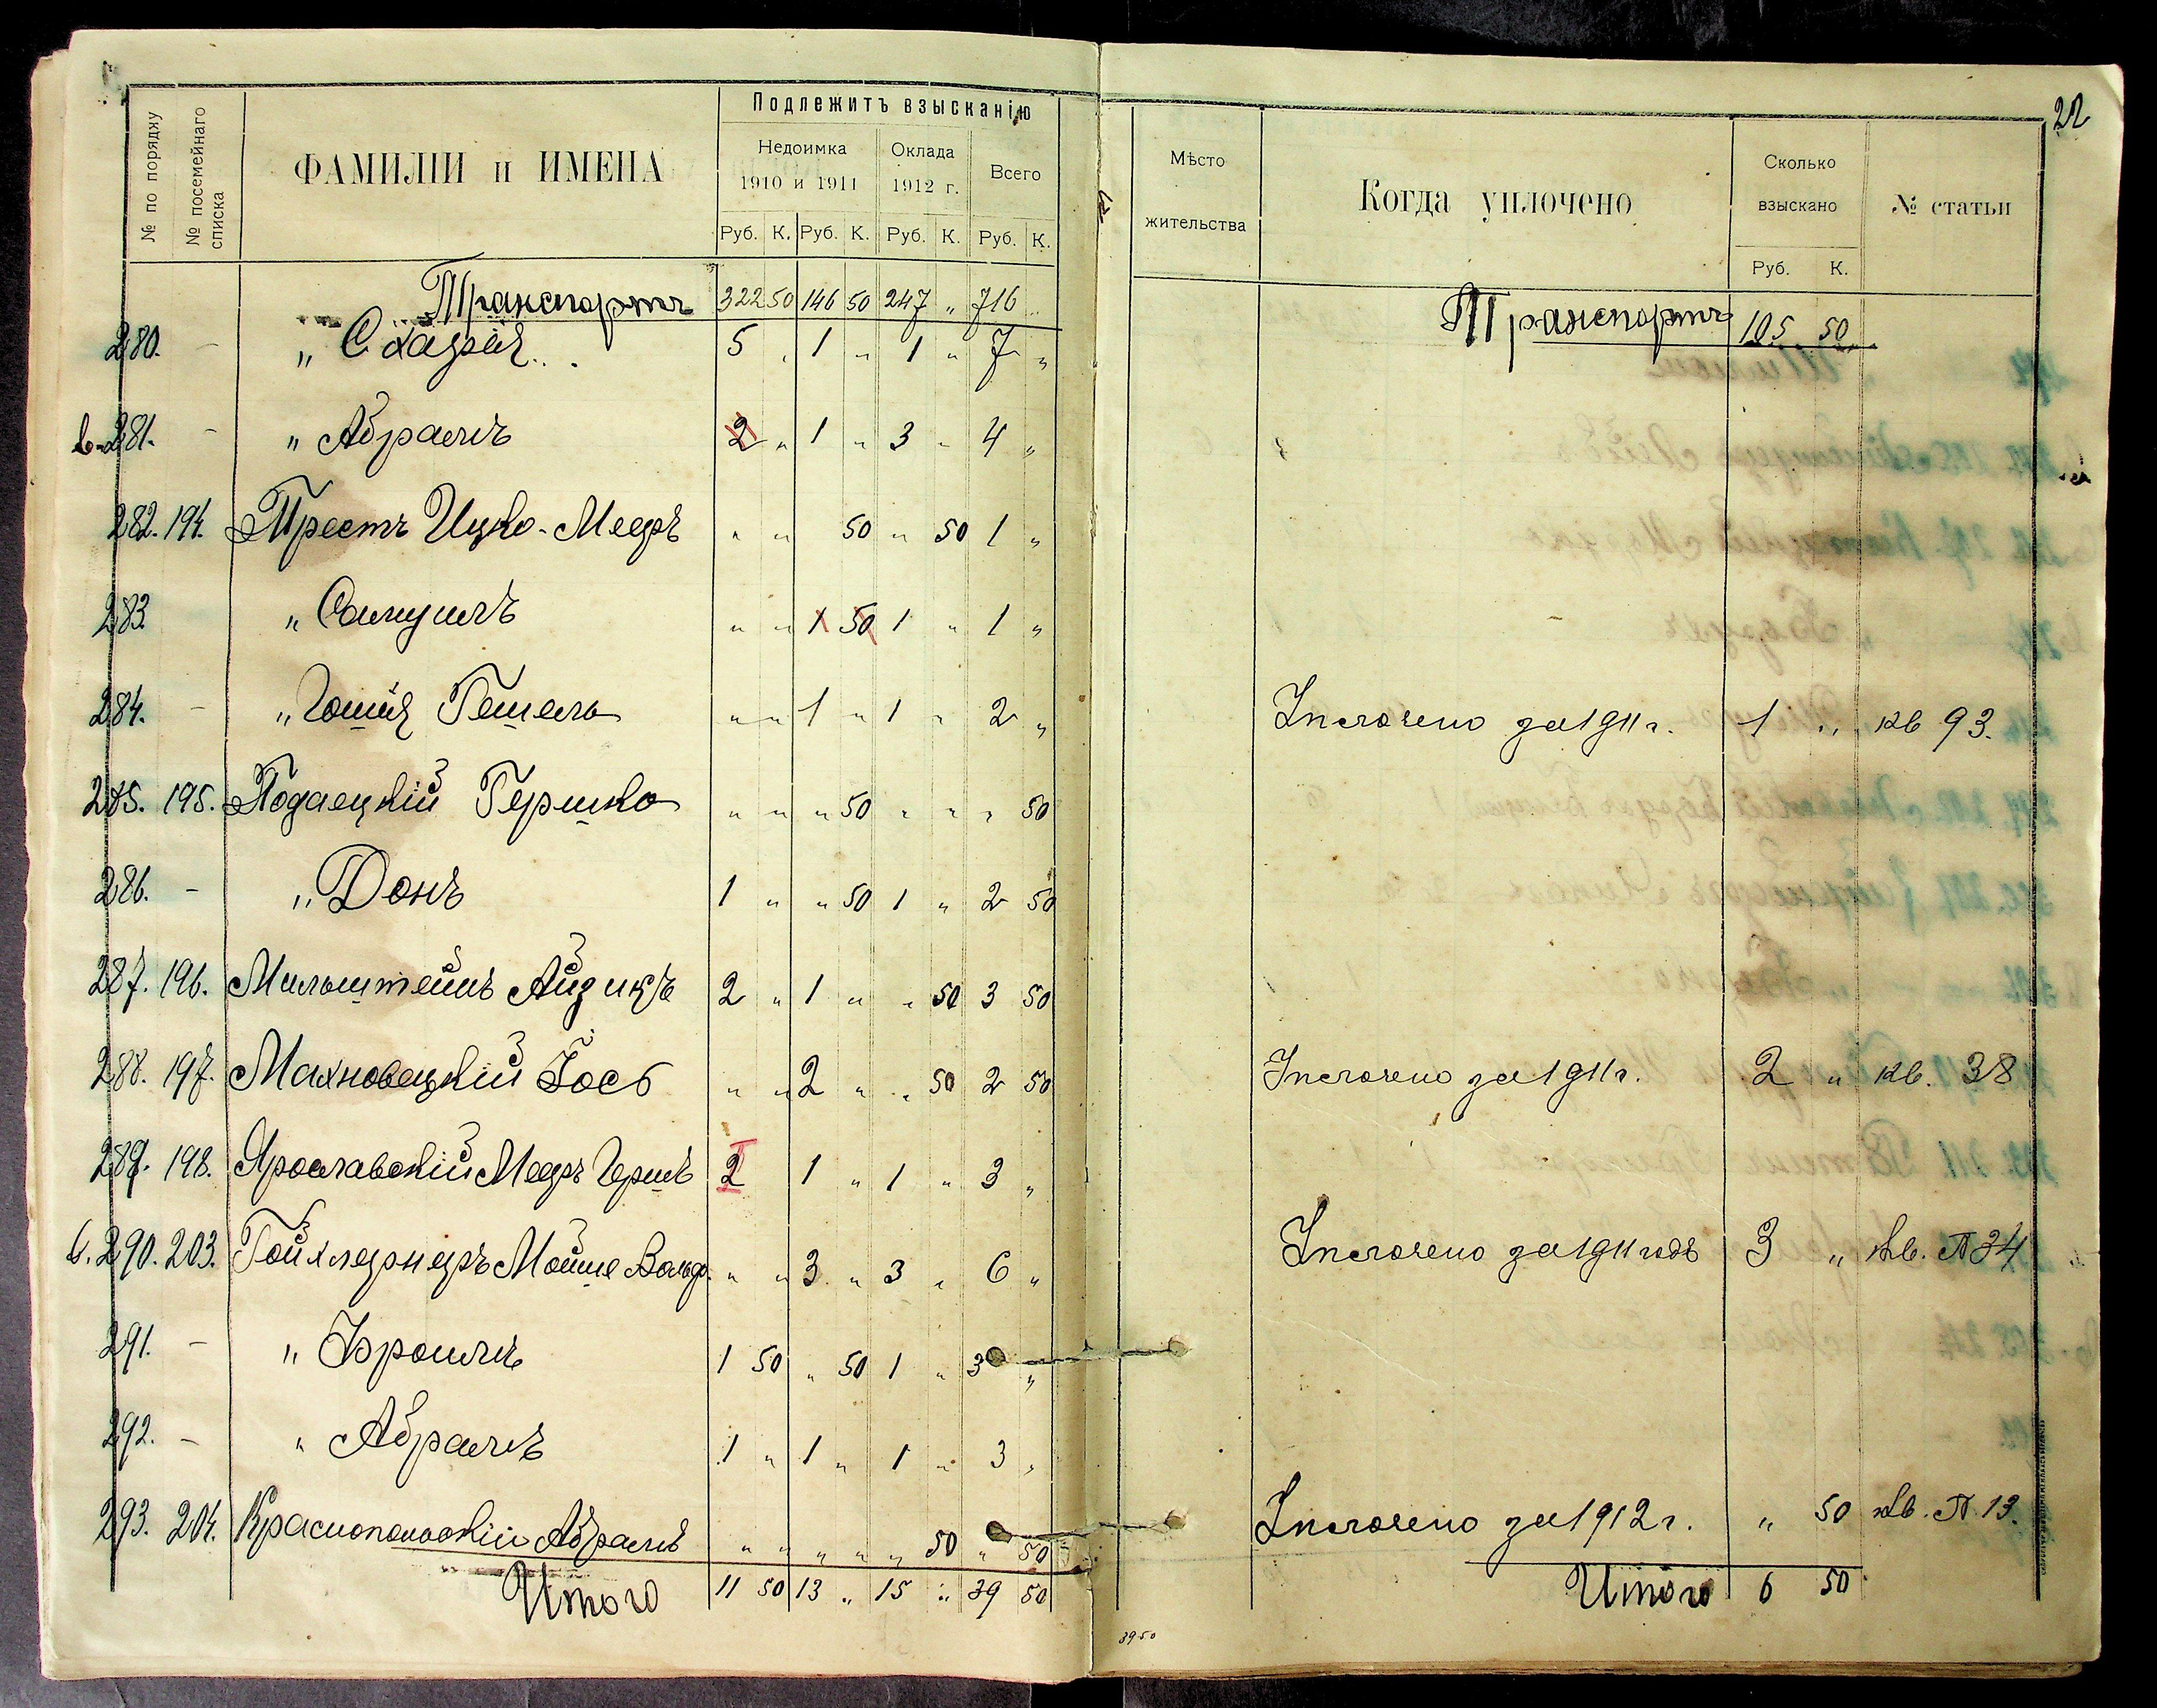 22
№ по порядку
№ посемейнаго списка
ФАМИЛІИ и ИМЕНА
Подлежитъ взысканію
Недоимка 1910 и 1911
Оклада 1912 г.
Всего
Руб. К. Руб. К. Руб. К. Руб. К.
Мѣсто жительства
Когда уплочено
Сколько взыскано
Руб. К.
№ статьи
Транспортъ 322 50 146 50 247 „ 716 „ Транспортъ 105 50
280. – „ 5 „ 1 „ 1 „ 7 „
в. 281. – „ Абрамъ 2 „ 1 „ 3 „ 4 „
282. 194. Трестъ Ицко-Мееръ „ „ 50 „ 50 1 „
283. „ Самуилъ „ „ 1 50 1 „ 1 „
284. – „ Гешель „ „ 1 „ 1 „ 2 „ Уплочено за 1911 г. 1 „ кв 93.
285. 195. Подаецкій Гершко „ „ „ 50 „ „ „ 50
286. – „ Донъ 1 „ „ 50 1 „ 2 50
287. 196. Мильштейнъ Айзикъ 2 „ 1 „ „ 50 3 50
288. 197. Махновецкій Іось „ „ 2 „ „ 50 2 50 Уплочено за 1911 г. 2 „ кв. 38
289. 198. Ярославскій Мееръ Гершъ 2 1 „ 1 „ 3 „
в. 290. 203. Гойхлернеръ Мойше Вольф. „ „ 3 „ 3 „ 6 „ Уплочено за 1911 годъ 3 „ кв. № 34
291. – „ Сроимъ 1 50 „ 50 1 „ 3 „
292. – „ Абрамъ 1 „ 1 „ 1 „ 3 „
293. 204. Краснопольскій Абрамъ „ „ „ „ „ 50 „ 50 Уплочено за 1912 г. „ 50 кв. № 13.
Итого 11 50 13 „ 15 „ 39 50 Итого 6 50
39 50